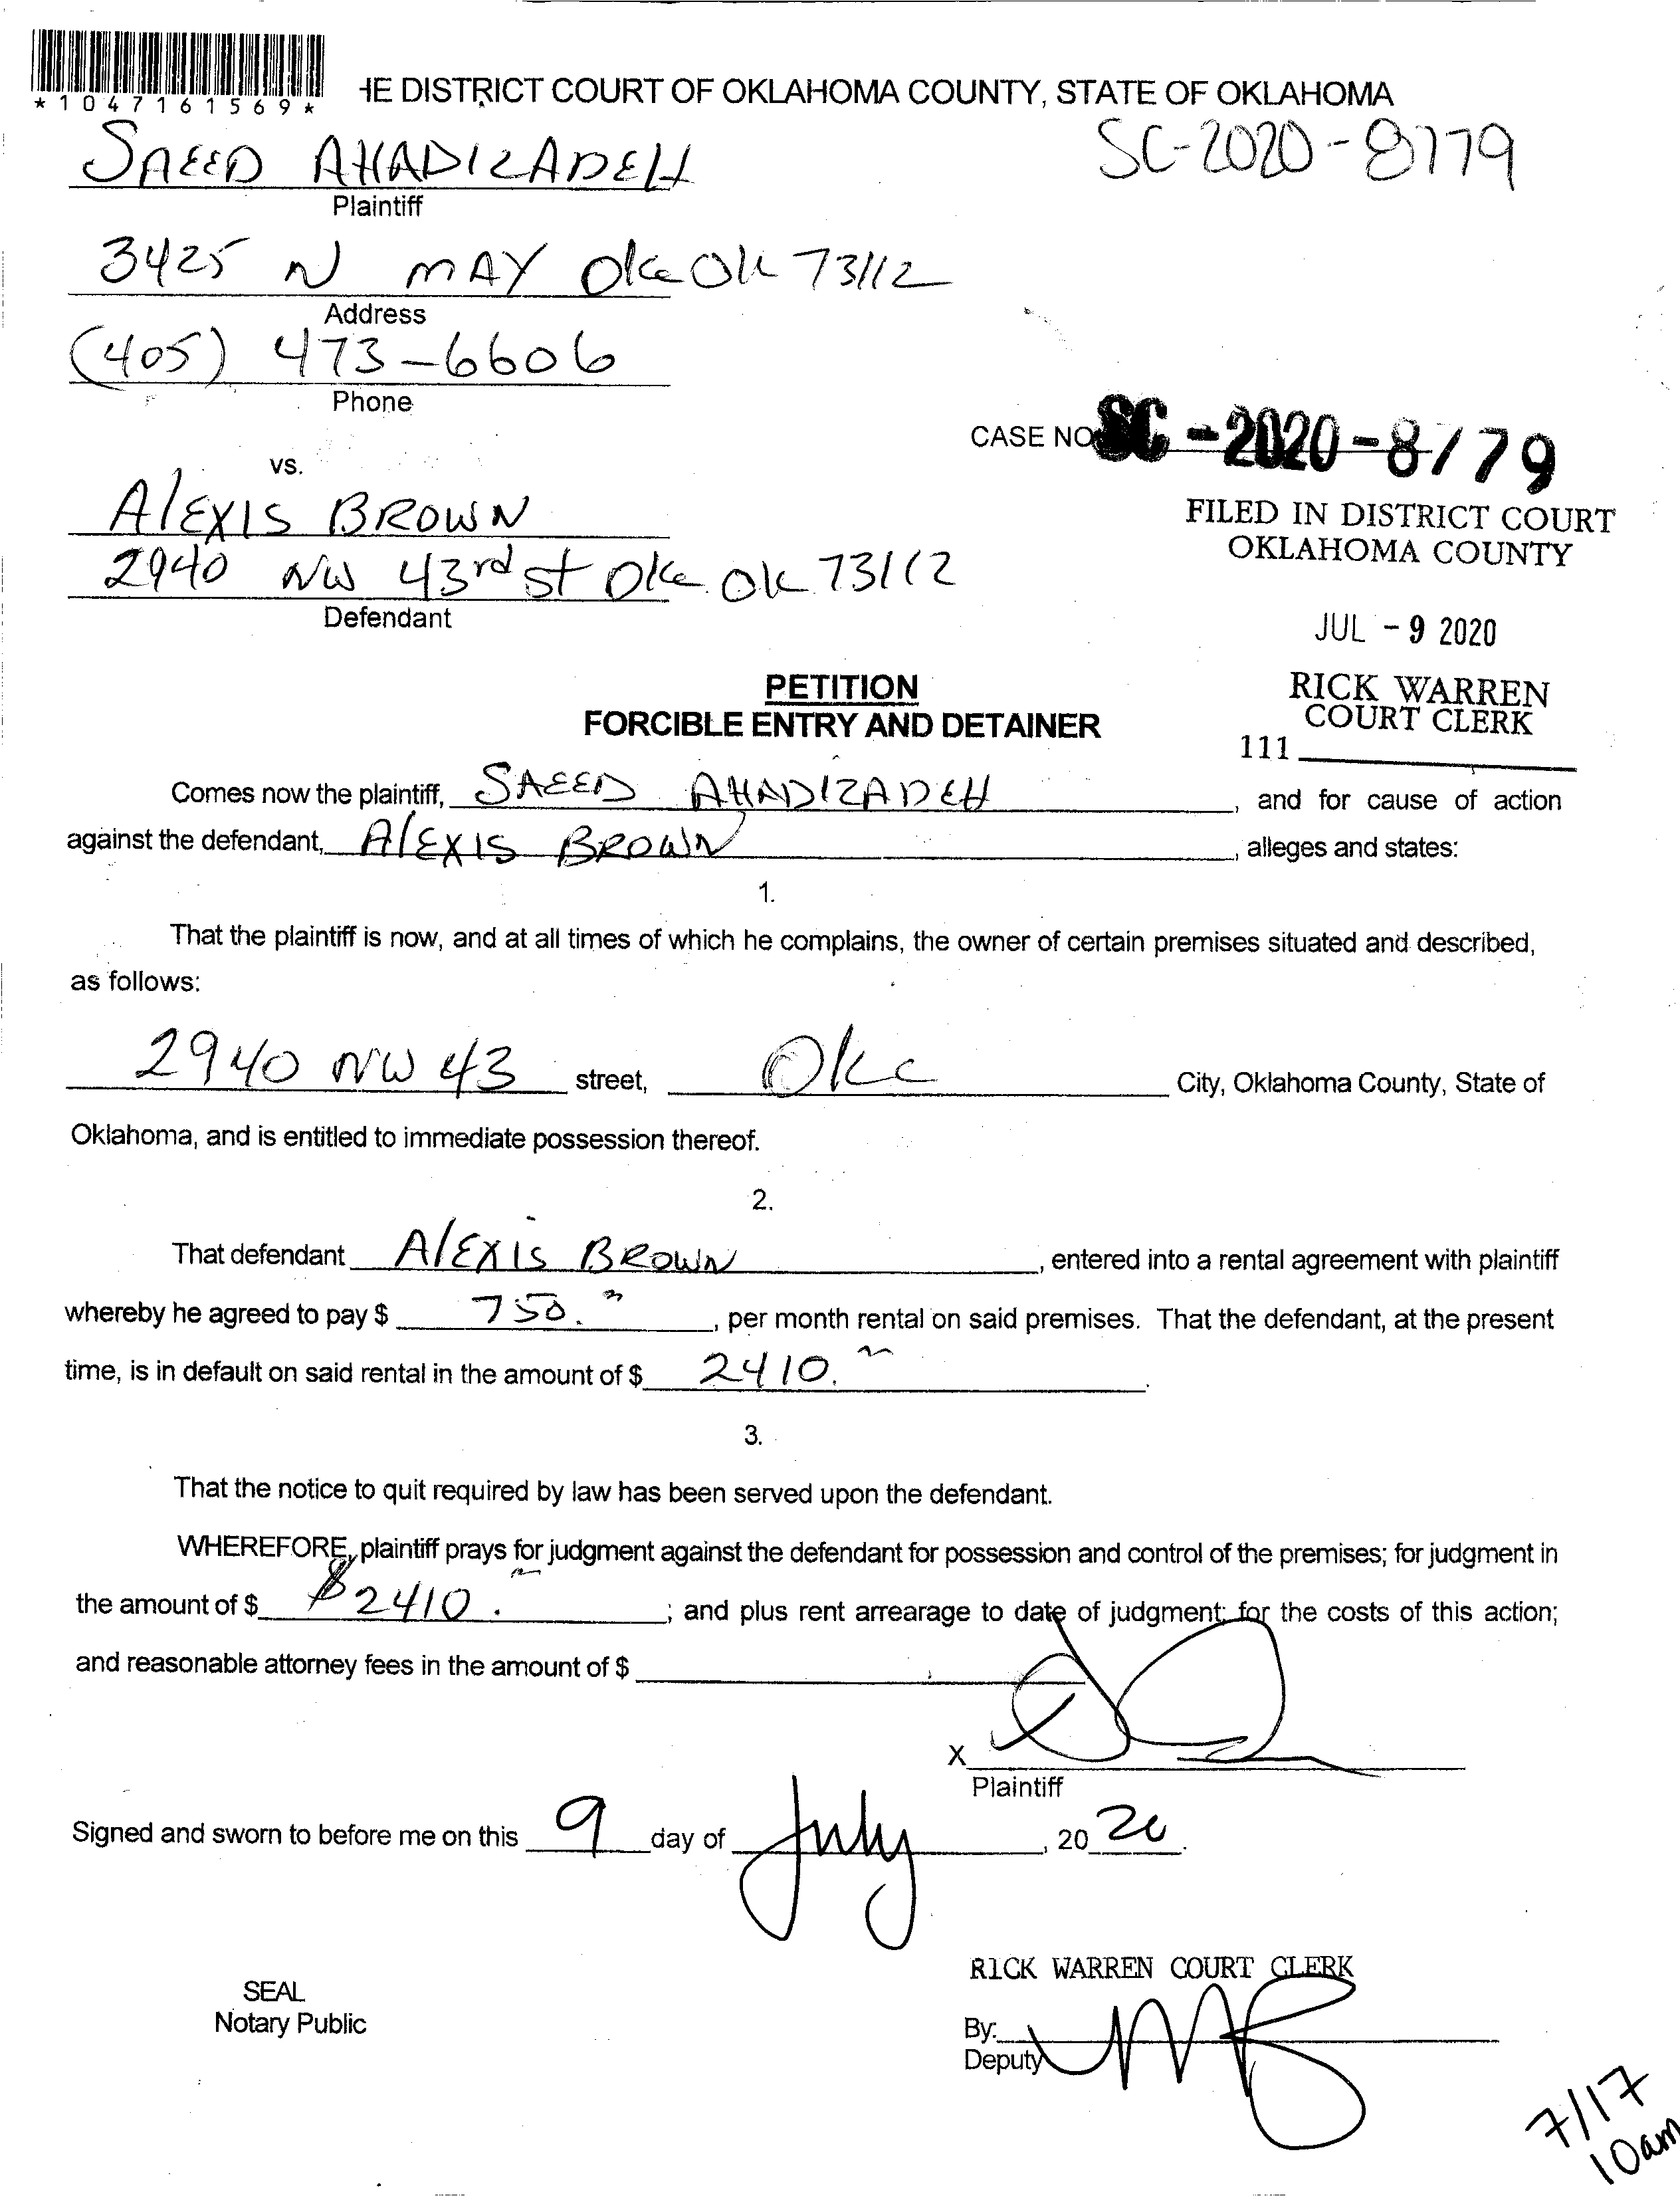 *1047161569*
HE DISTRICT COURT OF OKLAHOMA COUNTY, STATE OF OKLAHOMA
SAEED AHADIZADEH
SC-2020-8779
Plaintiff
3425 N MAY Okc Ok 73112
Address
(405) 473-6606
Phone
CASE NO SC-2020-8779
vs.
AlEXIS BROWN
FILED IN DISTRICT COURT
OKLAHOMA COUNTY
2940 NW 43rd st Okc Ok 73112
Defendant
JUL - 9 2020
PETITION
FORCIBLE ENTRY AND DETAINER
RICK WARREN
COURT CLERK
111
Comes now the plaintiff, SAEED AHADIZADEH, and for cause of action
against the defendant, AlEXIS BROWN, alleges and states:
1.
That the plaintiff is now, and at all times of which he complains, the owner of certain premises situated and described,
as follows:
2940 NW 43 street, Okc City, Oklahoma County, State of
Oklahoma, and is entitled to immediate possession thereof.
2.
That defendant AlEXIS BROWN, entered into a rental agreement with plaintiff
whereby he agreed to pay $ 750., per month rental on said premises. That the defendant, at the present
time, is in default on said rental in the amount of $ 2410.
3.
That the notice to quit required by law has been served upon the defendant.
WHEREFORE, plaintiff prays for judgment against the defendant for possession and control of the premises; for judgment in
the amount of $ $2410.; and plus rent arrearage to date of judgment; for the costs of this action;
and reasonable attorney fees in the amount of $
X
Plaintiff
Signed and sworn to before me on this 9 day of July, 2020.
RICK WARREN COURT CLERK
SEAL
Notary Public
By:
Deputy
7/17
10am